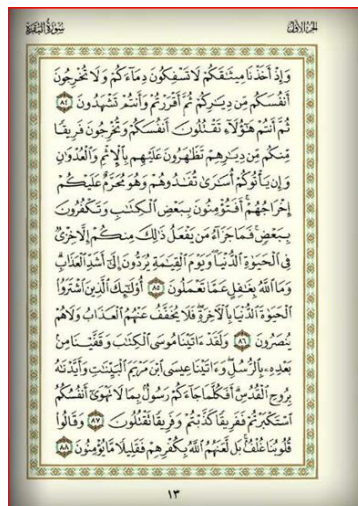 الجزء الأول سورة البقرة
وَإِذْ أَخَذْنَا مِيثَٰقَكُمْ لَا تَسْفِكُونَ دِمَآءَكُمْ وَلَا تُخْرِجُونَ
أَنفُسَكُم مِّن دِيَٰرِكُمْ ثُمَّ أَقْرَرْتُمْ وَأَنتُمْ تَشْهَدُونَ ٨٤
ثُمَّ أَنتُمْ هَٰٓؤُلَآءِ تَقْتُلُونَ أَنفُسَكُمْ وَتُخْرِجُونَ فَرِيقًا
مِّنكُم مِّن دِيَٰرِهِمْ تَظَٰهَرُونَ عَلَيْهِم بِٱلْإِثْمِ وَٱلْعُدْوَٰنِ
وَإِن يَأْتُوكُمْ أُسَٰرَىٰ تُفَٰدُوهُمْ وَهُوَ مُحَرَّمٌ عَلَيْكُمْ
إِخْرَاجُهُمْ ۚ أَفَتُؤْمِنُونَ بِبَعْضِ ٱلْكِتَٰبِ وَتَكْفُرُونَ
بِبَعْضٍ ۚ فَمَا جَزَآءُ مَن يَفْعَلُ ذَٰلِكَ مِنكُمْ إِلَّا خِزْىٌ
فِى ٱلْحَيَوٰةِ ٱلدُّنْيَا ۖ وَيَوْمَ ٱلْقِيَٰمَةِ يُرَدُّونَ إِلَىٰٓ أَشَدِّ ٱلْعَذَابِ ۗ
وَمَا ٱللَّهُ بِغَٰفِلٍ عَمَّا تَعْمَلُونَ ٨٥ أُو۟لَٰٓئِكَ ٱلَّذِينَ ٱشْتَرَوُا۟
ٱلْحَيَوٰةَ ٱلدُّنْيَا بِٱلْءَاخِرَةِ ۖ فَلَا يُخَفَّفُ عَنْهُمُ ٱلْعَذَابُ وَلَا هُمْ
يُنصَرُونَ ٨٦ وَلَقَدْ ءَاتَيْنَا مُوسَى ٱلْكِتَٰبَ وَقَفَّيْنَا مِنۢ
بَعْدِهِۦ بِٱلرُّسُلِ ۖ وَءَاتَيْنَا عِيسَى ٱبْنَ مَرْيَمَ ٱلْبَيِّنَٰتِ وَأَيَّدْنَٰهُ
بِرُوحِ ٱلْقُدُسِ ۗ أَفَكُلَّمَا جَآءَكُمْ رَسُولٌۢ بِمَا لَا تَهْوَىٰٓ أَنفُسُكُمُ
ٱسْتَكْبَرْتُمْ فَفَرِيقًا كَذَّبْتُمْ وَفَرِيقًا تَقْتُلُونَ ٨٧ وَقَالُوا۟
قُلُوبُنَا غُلْفٌۢ ۚ بَل لَّعَنَهُمُ ٱللَّهُ بِكُفْرِهِمْ فَقَلِيلًا مَّا يُؤْمِنُونَ ٨٨
١٣